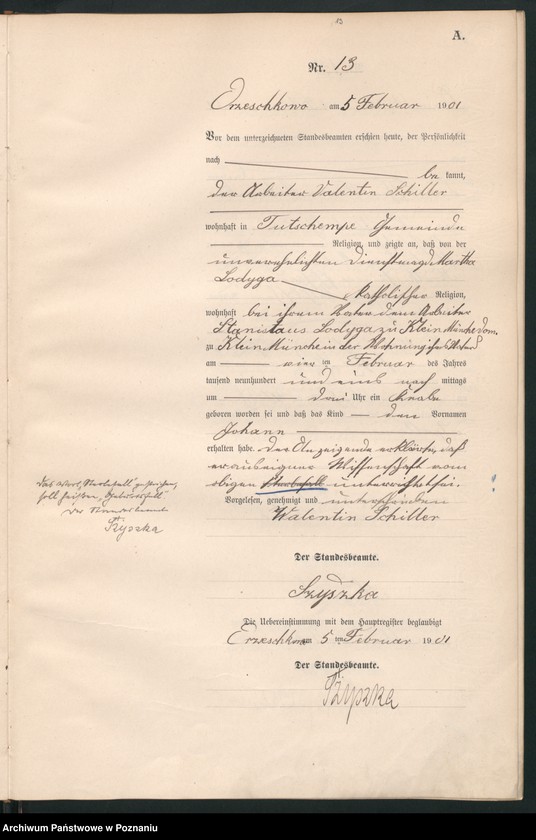 13
A.
Nr. 13
Orzeschkowo am 5 Februar 1901
Vor dem unterzeichneten Standesbeamten erschien heute, der Persönlichkeit
nach be kannt,
der Arbeiter Valentin Schiller
wohnhaft in Tutschempe Gemeinde
Religion, und zeigte an, daß von der
unverehelichten Dienstmagd Martha
Lodyga
katholischer Religion,
wohnhaft bei ihrem Vater dem Arbeiter
Stanislaus Lodyga zu Klein Münche dom.
zu Klein Münche in der Wohnung ihres Vaters
am vier ten Februar des Jahres
tausend neunhundert und eins nach mittags
um drei Uhr ein Knabe
geboren worden sei und daß das Kind den Vornamen
Johann
erhalten habe. Der Anzeigende erklärte, daß
er aus eigener Wissenschaft vom
obigen Sterbefall unterrichtet sei.
Vorgelesen, genehmigt und unterschrieben
Walentin Schiller
Das Wort, Sterbefall gestrichen,
soll heißen, Geburtsfall
Der Standesbeamte
Szyszka
Der Standesbeamte.
Szyszka
Die Uebereinstimmung mit dem Hauptregister beglaubigt
Orzeschkowo am 5 ten Februar 1901
Der Standesbeamte.
Szyszka
Archiwum Państwowe w Poznaniu